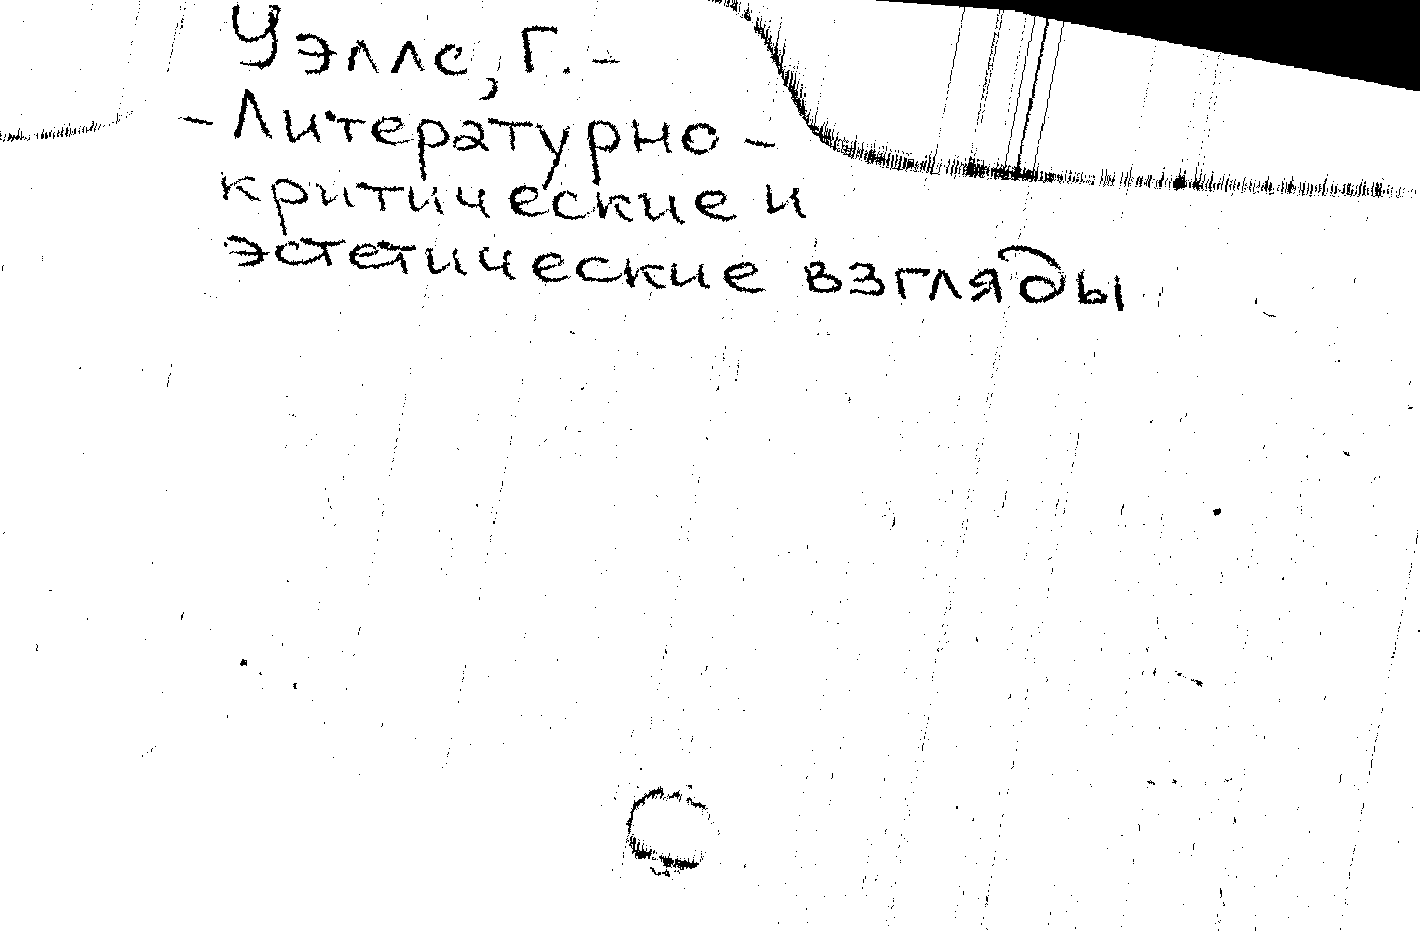 Уэллс, Г. –
– Литературно –
критические и
эстетические взгляды